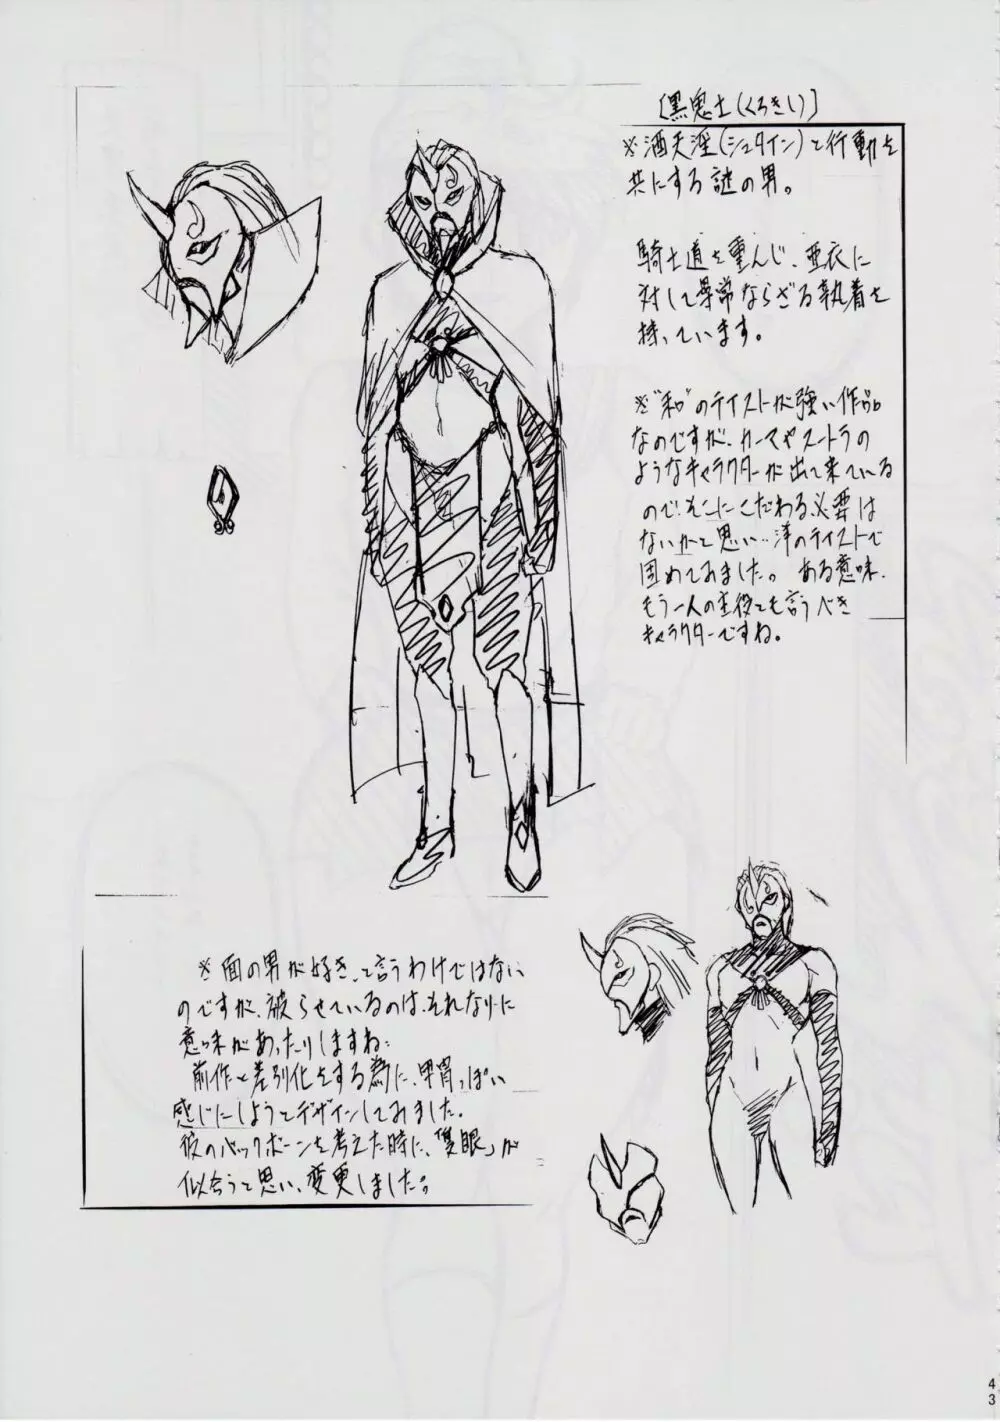 [黒鬼士(くろきし)]
※酒天淫(シュタイン)と行動を
共にする謎の男。
騎士道を重んじ、亜衣に
対して異常ならざる執着を
持っています。
※"和"のテイストが強い作品
なのですが、カーマやスートラの
ようなキャラクターが出て来ている
ので、そこにこだわる必要は
ないかと思い…洋のテイストで
固めてみました。ある意味、
もう一人の主役とも言うべき
キャラクターですね。
※面の男が好き、と言うわけではない
のですが、被らせているのは、それなりに
意味があったりしますね…
前作と差別化をする為に、甲冑っぽい
感じにしようとデザインしてみました。
彼のバックボーンを考えた時に、「隻眼」が
似合うと思い、変更しました。
43